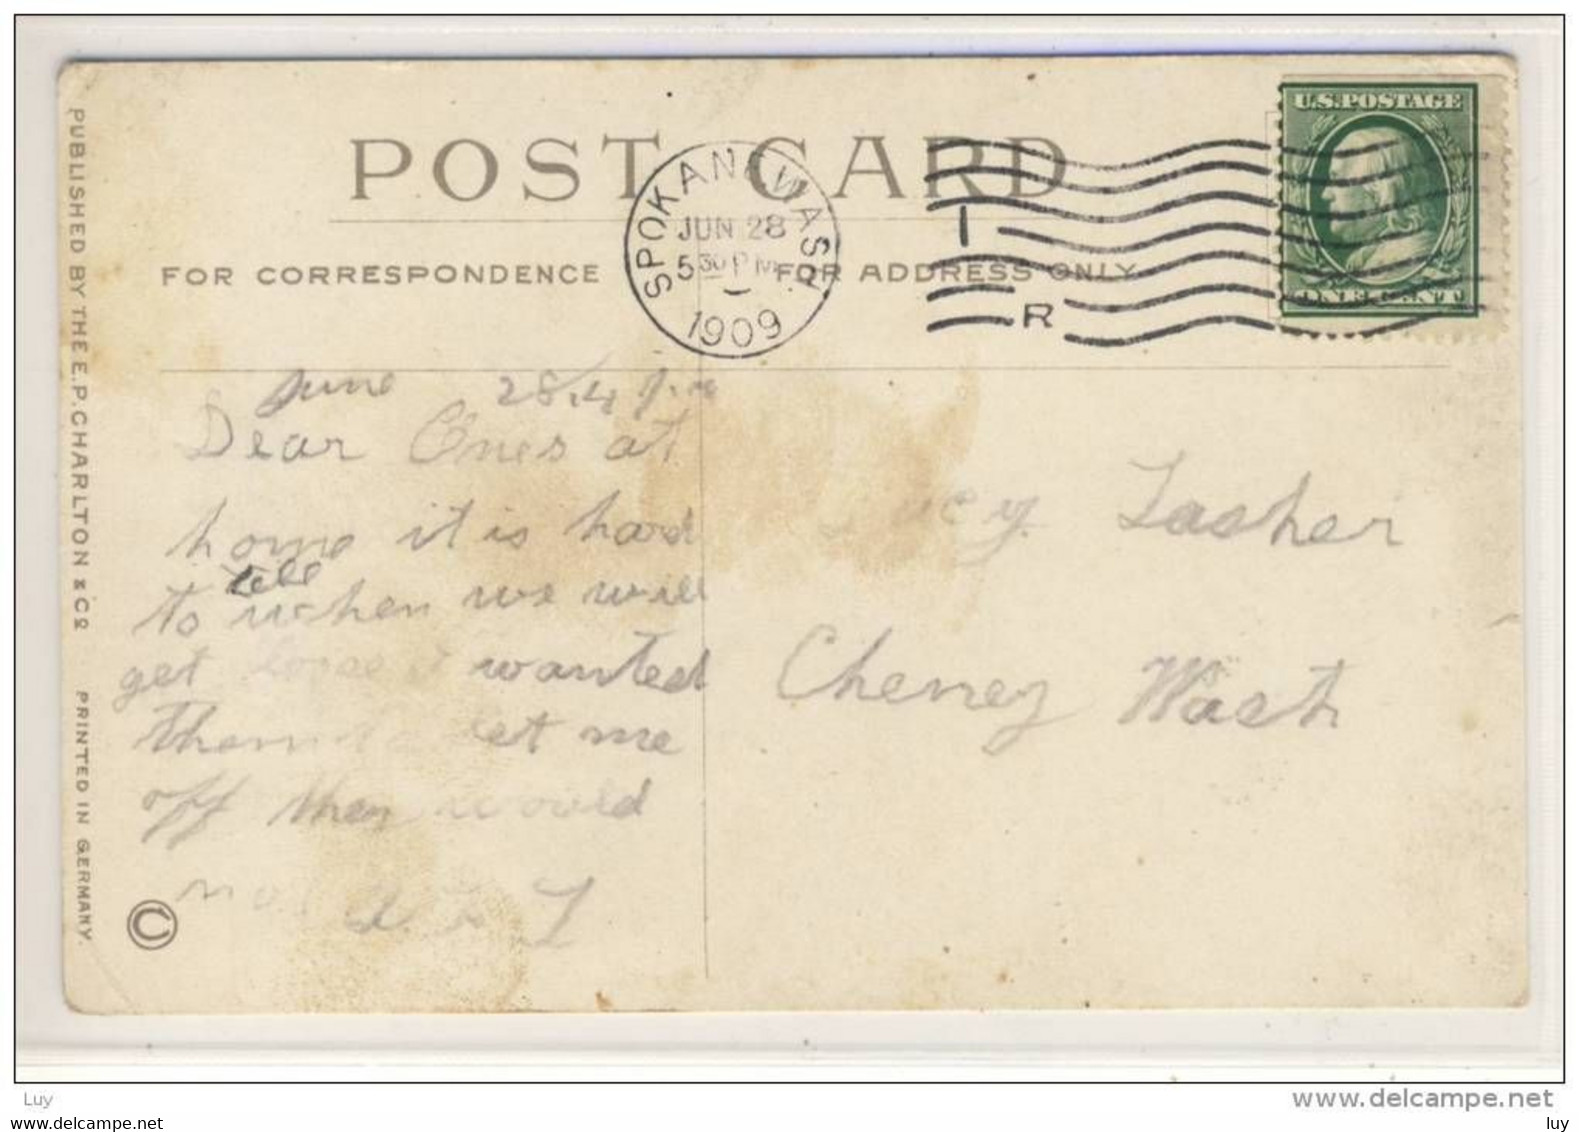 POST CARD
FOR CORRESPONDENCE
FOR ADDRESS ONLY
SPOKANE, WASH.
JUN 28
5 30 P M
1909
I
R
U.S. POSTAGE
ONE CENT
PUBLISHED BY THE E. P. CHARLTON & CO.
PRINTED IN GERMANY.
©
June 28, 4 p.m
Dear Ones at
home it is hard
tell
to when we will
get wanted
them let me
off they would
Lasher
Cheney Wash
Luy
©www.delcampe.net
luy